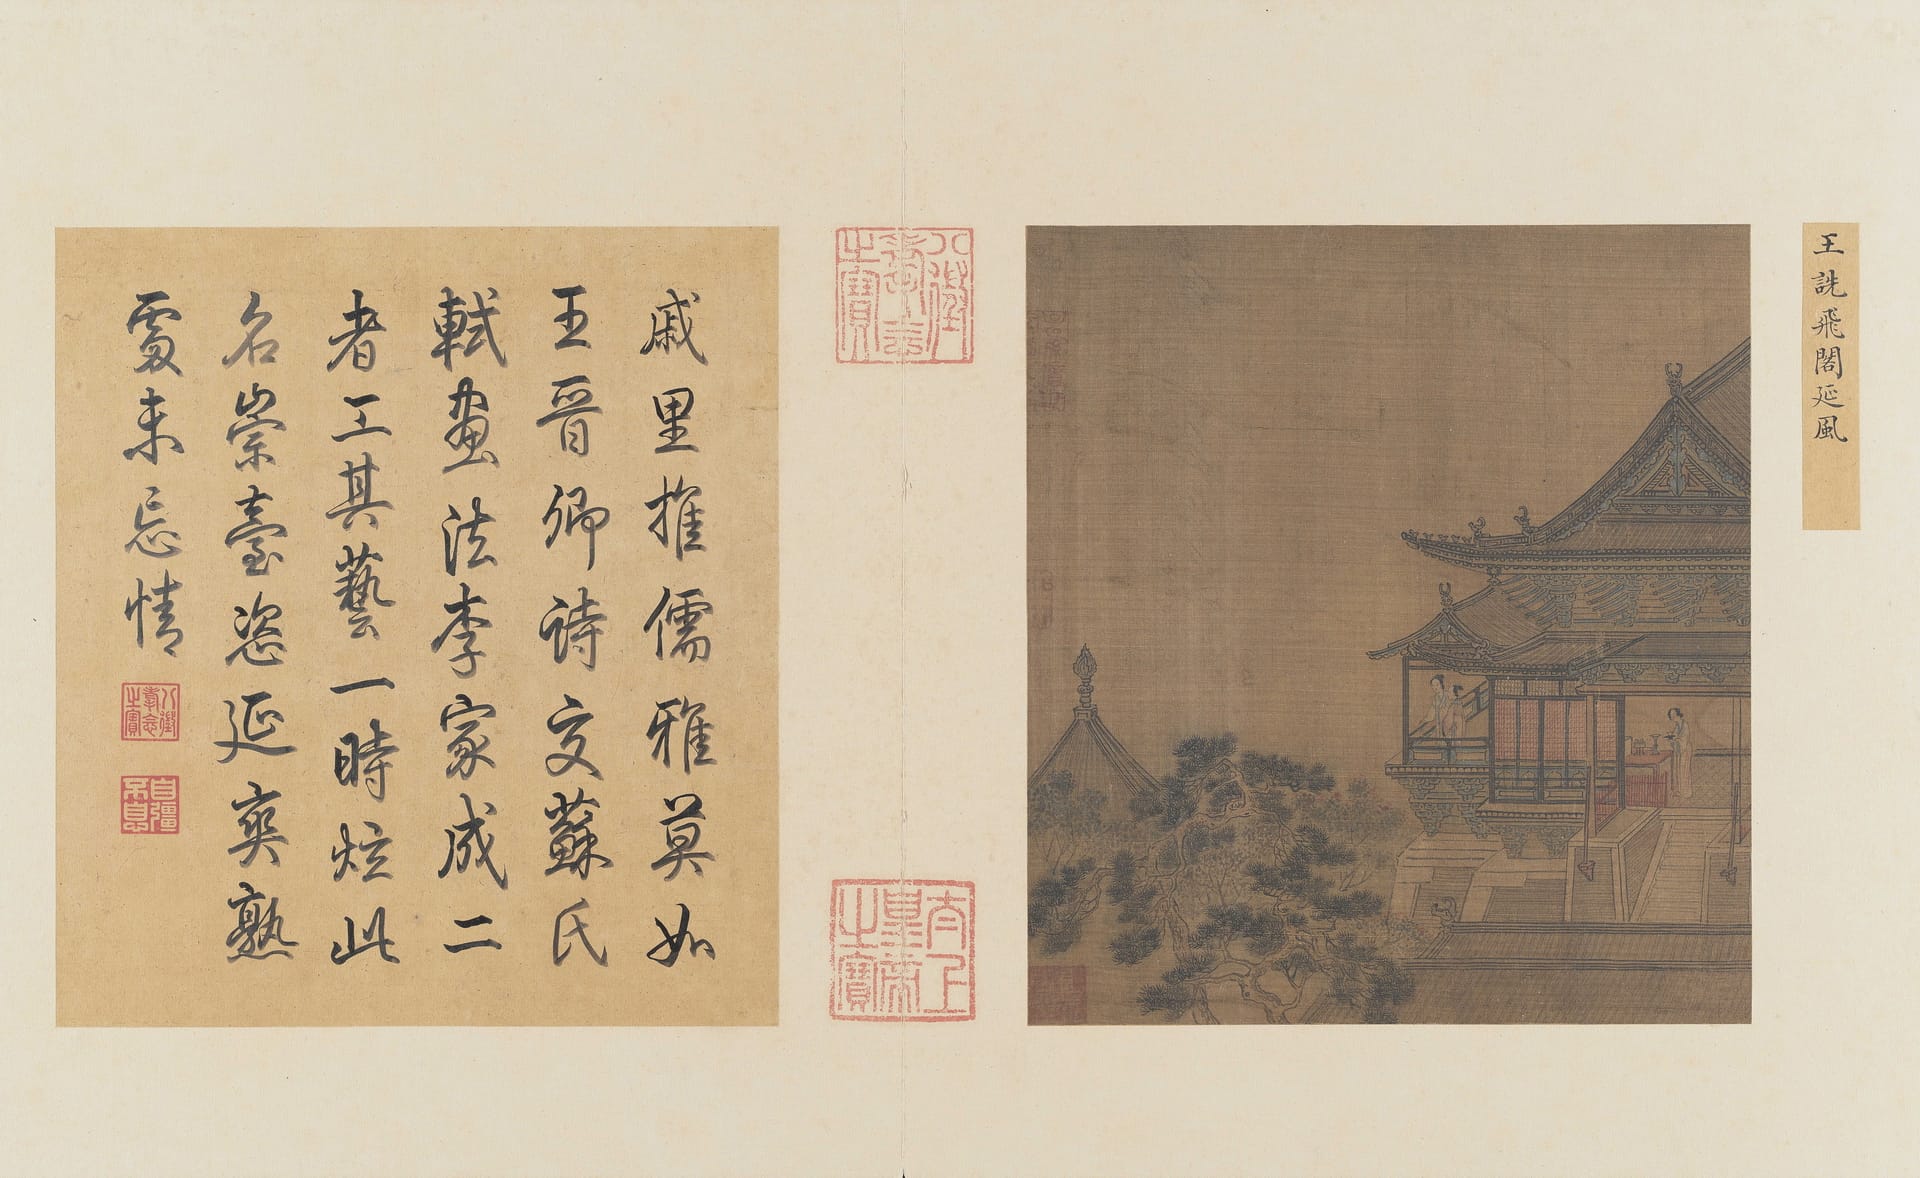 王詵飛閣延風
八徵耄念之寶
太上皇帝之寶
戚里推儒雅莫如
王晉卿詩文蘇氏
軾畫法李家成二
者工其藝一時炫此
名崇臺恣延爽熱
處未忘情
八徵耄念之寶
自彊不息